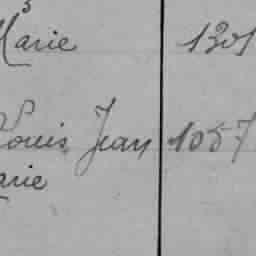 Marie 1301
Louis Jean 1057
arie